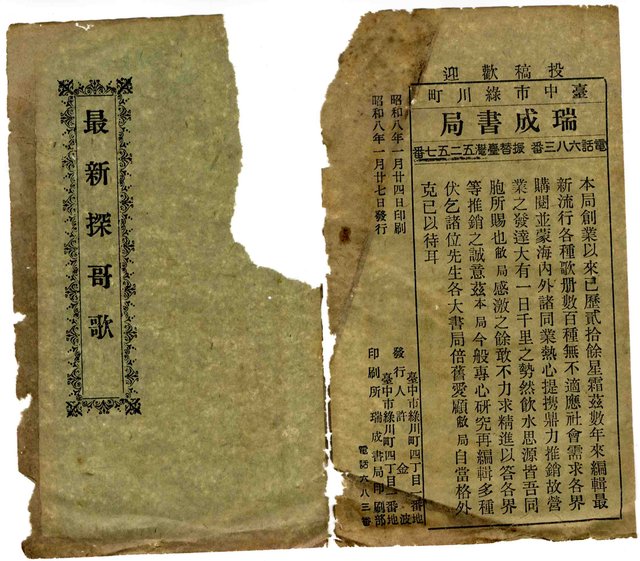 投稿歡迎
臺中市綠川町
瑞成書局
電話六八三番 振替臺灣五二五七番
本局創業以來已歷貳拾餘星霜茲數年來編輯最
新流行各種歌册數百種無不適應社會需求各界
購閱並蒙海內外諸同業熱心提携鼎力推銷故營
業之發達大有一日千里之勢然飲水思源皆吾同
胞所賜也敝局感激之餘敢不力求精進以答各界
等推銷之誠意茲本局今般專心研究再編輯多種
伏乞諸位先生各大書局倍舊愛顧敝局自當格外
克已以待耳
昭和八年一月廿四日印刷
昭和八年一月廿七日發行
臺中市綠川町四丁目一番地
發行人許金波
臺中市綠川町四丁目一番地
印刷所瑞成書局印刷部
電話六八三番
最新探哥歌